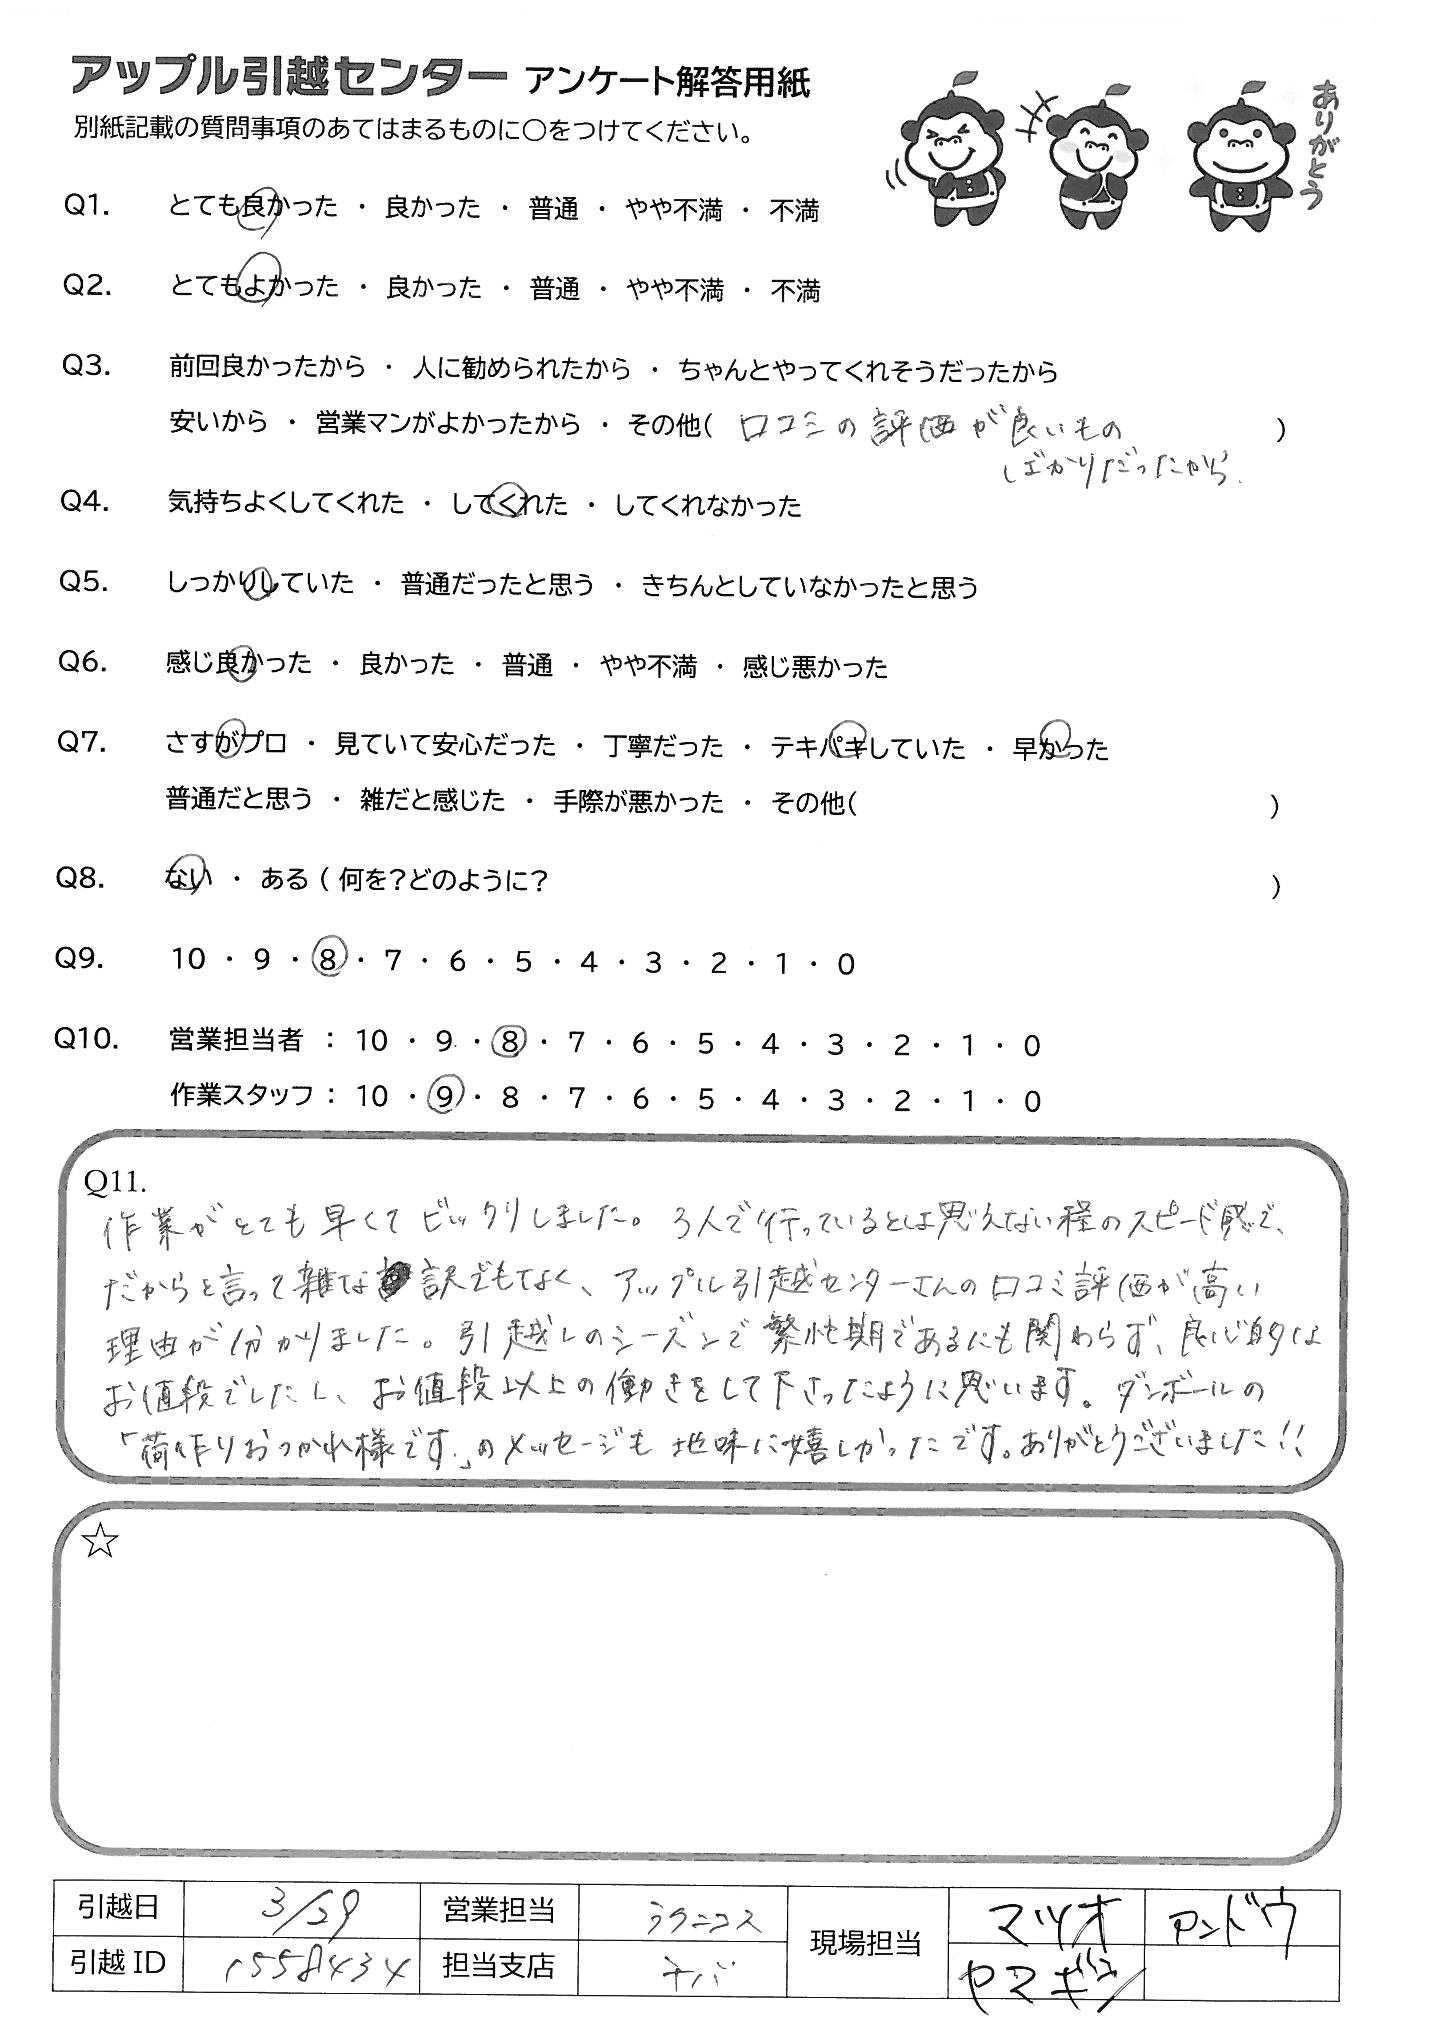 アップル引越センター アンケート解答用紙
別紙記載の質問事項のあてはまるものに○をつけてください。
ありがとう
Q1. とても良かった ・ 良かった ・ 普通 ・ やや不満 ・ 不満
Q2. とてもよかった ・ 良かった ・ 普通 ・ やや不満 ・ 不満
Q3. 前回良かったから ・ 人に勧められたから ・ ちゃんとやってくれそうだったから
安いから ・ 営業マンがよかったから ・ その他( 口コミの評価が良いもの )
ばかりだったから.
Q4. 気持ちよくしてくれた ・ してくれた ・ してくれなかった
Q5. しっかりしていた ・ 普通だったと思う ・ きちんとしていなかったと思う
Q6. 感じ良かった ・ 良かった ・ 普通 ・ やや不満 ・ 感じ悪かった
Q7. さすがプロ ・ 見ていて安心だった ・ 丁寧だった ・ テキパキしていた ・ 早かった
普通だと思う ・ 雑だと感じた ・ 手際が悪かった ・ その他( )
Q8. ない ・ ある ( 何を?どのように? )
Q9. 10 ・ 9 ・ 8 ・ 7 ・ 6 ・ 5 ・ 4 ・ 3 ・ 2 ・ 1 ・ 0
Q10. 営業担当者 : 10 ・ 9 ・ 8 ・ 7 ・ 6 ・ 5 ・ 4 ・ 3 ・ 2 ・ 1 ・ 0
作業スタッフ : 10 ・ 9 ・ 8 ・ 7 ・ 6 ・ 5 ・ 4 ・ 3 ・ 2 ・ 1 ・ 0
Q11.
作業がとても早くてビックリしました。3人で行っているとは思えない程のスピード感で、
だからと言って雑な訳でもなく、アップル引越センターさんの口コミ評価が高い
理由が分かりました。引越しのシーズンで繁忙期であるにも関わらず、良心的な
お値段でしたし、お値段以上の働きをして下さったように思います。ダンボールの
「荷作りおつかれ様です.」のメッセージも地味に嬉しかったです。ありがとうございました!!
☆
引越日 3/29 営業担当 ラクニコス 現場担当 マツオ アンドウ
引越ID 1558434 担当支店 チバ ヤマギシ